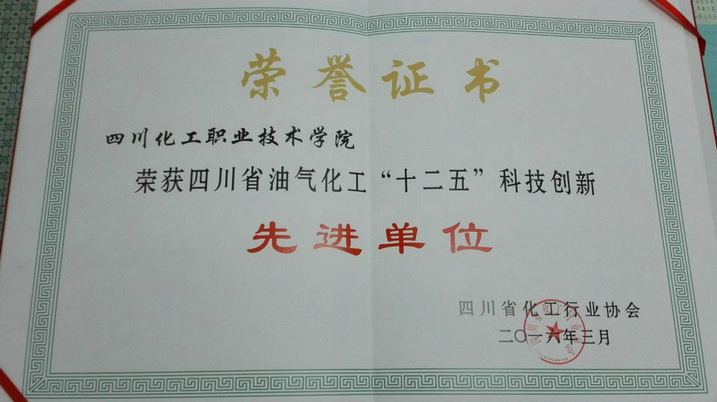 荣誉证书
四川化工职业技术学院
荣获四川省油气化工“十二五”科技创新
先进单位
四川省化工行业协会
二〇一六年三月